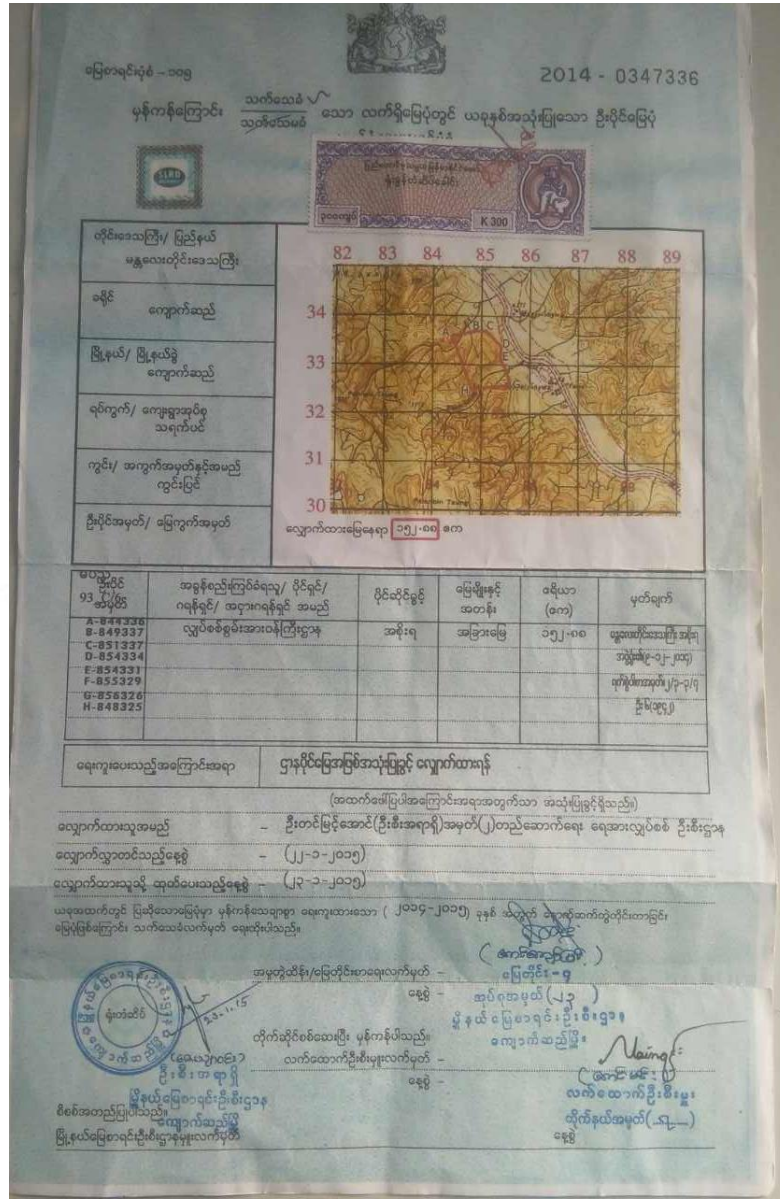 မြေစာရင်းပုံစံ - ၁၀၅
2014 - 0347336
မှန်ကန်ကြောင်း သက်သေခံ သော လက်ရှိမြေပုံတွင် ယခုနှစ်အသုံးပြုသော ဦးပိုင်မြေပုံ
သက်သေမခံ
SLRD
ရုံးခွန်တံဆိပ်ခေါင်း
၃၀၀ကျပ် K 300
တိုင်းဒေသကြီး/ ပြည်နယ်
မန္တလေးတိုင်းဒေသကြီး
ခရိုင်
ကျောက်ဆည်
မြို့နယ်/ မြို့နယ်ခွဲ
ကျောက်ဆည်
ရပ်ကွက်/ ကျေးရွာအုပ်စု
သရက်ပင်
ကွင်း/ အကွက်အမှတ်နှင့်အမည်
ကွင်းပြင်
ဦးပိုင်အမှတ်/ မြေကွက်အမှတ်
82 83 84 85 86 87 88 89
34
33
32
31
30
လျှောက်ထားမြေနေရာ ၁၅၂.၈၈ ဧက
ဦးပိုင်အမှတ်
93
အခွန်စည်းကြပ်ခံရသူ/ ပိုင်ရှင်/
ဂရန်ရှင်/ အငှားဂရန်ရှင် အမည်
ပိုင်ဆိုင်ခွင့်
မြေမျိုးနှင့်
အတန်း
ဧရိယာ
(ဧက)
မှတ်ချက်
A-844336
B-849337
C-851337
D-854334
E-854331
F-855329
G-856326
H-848325
လျှပ်စစ်စွမ်းအားဝန်ကြီးဌာန
အစိုးရ
အခြားမြေ
၁၅၂.၈၈
မန္တလေးတိုင်းဒေသကြီး အစိုးရ
အဖွဲ့၏(၉-၁၂-၂၀၁၄)
ရေးကူးပေးသည့်အကြောင်းအရာ
ဌာနပိုင်မြေအဖြစ်အသုံးပြုခွင့် လျှောက်ထားရန်
(အထက်ဖော်ပြပါအကြောင်းအရာအတွက်သာ အသုံးပြုခွင့်ရှိသည်။)
လျှောက်ထားသူအမည် - ဦးတင်မြင့်အောင်(ဦးစီးအရာရှိ)အမှတ်(၂)တည်ဆောက်ရေး ရေအားလျှပ်စစ် ဦးစီးဌာန
လျှောက်လွှာတင်သည့်နေ့စွဲ - (၂၂-၁-၂၀၁၅)
လျှောက်ထားသူသို့ ထုတ်ပေးသည့်နေ့စွဲ - (၂၃-၁-၂၀၁၅)
ယခုအထက်တွင် ပြဆိုသောမြေပုံမှာ မှန်ကန်သေချာစွာ ရေးကူးထားသော ( ၂၀၁၄-၂၀၁၅) ခုနှစ် အတွက်
မြေပုံဖြစ်ကြောင်း သက်သေခံလက်မှတ် ရေးထိုးပါသည်။
အမှုတွဲထိန်း/မြေတိုင်းစာရေးလက်မှတ် -
မြေတိုင်း-၄
နေ့စွဲ -
အုပ်စုအမှတ်(၂၃)
မြို့နယ်မြေစာရင်းဦးစီးဌာန
ကျောက်ဆည်မြို့။
ရုံးတံဆိပ်
တိုက်ဆိုင်စစ်ဆေးပြီး မှန်ကန်ပါသည်။
လက်ထောက်ဦးစီးမှူးလက်မှတ် -
နေ့စွဲ -
လက်ထောက်ဦးစီးမှူး
ဦးစီးအရာရှိ
မြို့နယ်မြေစာရင်းဦးစီးဌာန
ကျောက်ဆည်မြို့
စိစစ်အတည်ပြုပါသည်။
မြို့နယ်မြေစာရင်းဦးစီးဌာနမှူးလက်မှတ်
နေ့စွဲ